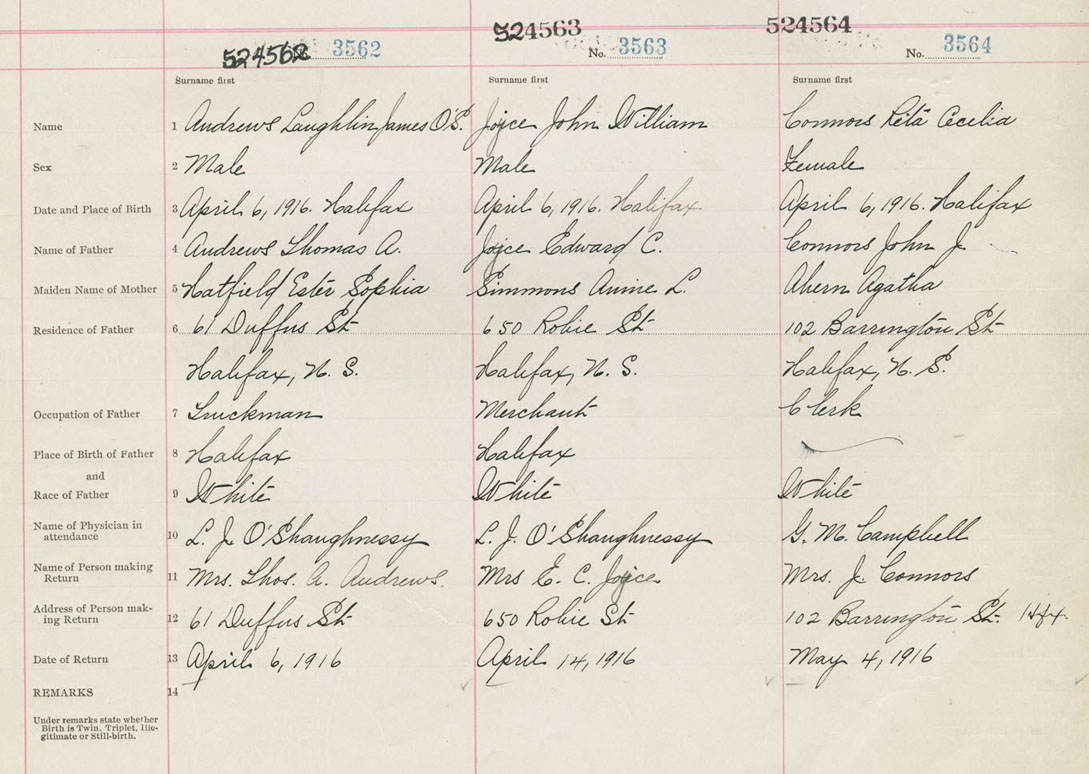 524562 3562 524563 No. 3563 524564 No. 3564
Surname first Surname first Surname first
Name 1 Andrews Laughlin James O'S. Joyce John William Connors Rita Cecilia
Sex 2 Male Male Female
Date and Place of Birth 3 April 6, 1916. Halifax April 6, 1916. Halifax April 6, 1916. Halifax
Name of Father 4 Andrews Thomas A. Joyce Edward C. Connors John J.
Maiden Name of Mother 5 Hatfield Ester Sophia Simmons Annie L. Ahern Agatha
Residence of Father 6 61 Duffus St 650 Robie St 102 Barrington St
Halifax, N. S. Halifax, N. S. Halifax, N. S.
Occupation of Father 7 Truckman Merchant Clerk
Place of Birth of Father 8 Halifax Halifax
and
Race of Father 9 White White White
Name of Physician in
attendance 10 L. J. O'Shaughnessy L. J. O'Shaughnessy G. M. Campbell
Name of Person making
Return 11 Mrs. Thos. A. Andrews. Mrs E. C. Joyce Mrs. J. Connors
Address of Person mak-
ing Return 12 61 Duffus St 650 Robie St 102 Barrington St. Hfx.
Date of Return 13 April 6, 1916 April 14, 1916 May 4, 1916
REMARKS 14
Under remarks state whether
Birth is Twin, Triplet, Ille-
gitimate or Still-birth.